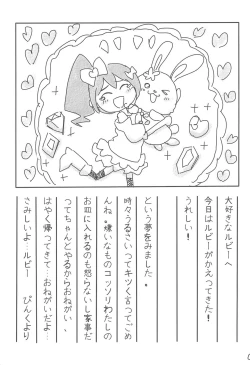 大好きなルビーへ
今日はルビーがかえってきた!
うれしい!
という夢をみました。
時々うるさいってキツく言ってごめ
んね。嫌いなものコッソリわたしの
お皿に入れるのも怒らないし家事だ
ってちゃんとやるからおねがい、
はやく帰ってきて…おねがいだよ…
さみしいよ ルビー ぴんくより